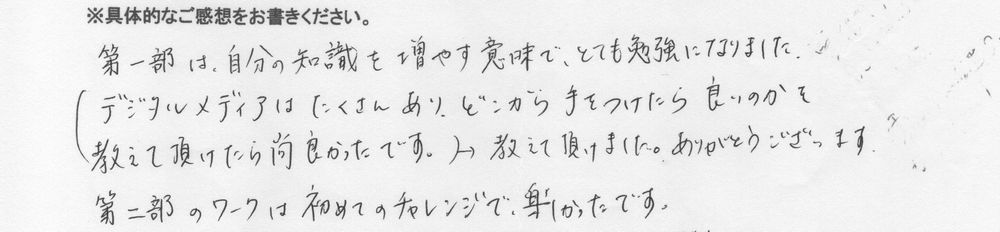 ※具体的なご感想をお書きください。
第一部は、自分の知識を増やす意味で、とても勉強になりました。
デジタルメディアはたくさんあり、どこから手をつけたら良いのかを
教えて頂けたら尚良かったです。→教えて頂けました。ありがとうございます。
第二部のワークは初めてのチャレンジで、楽しかったです。